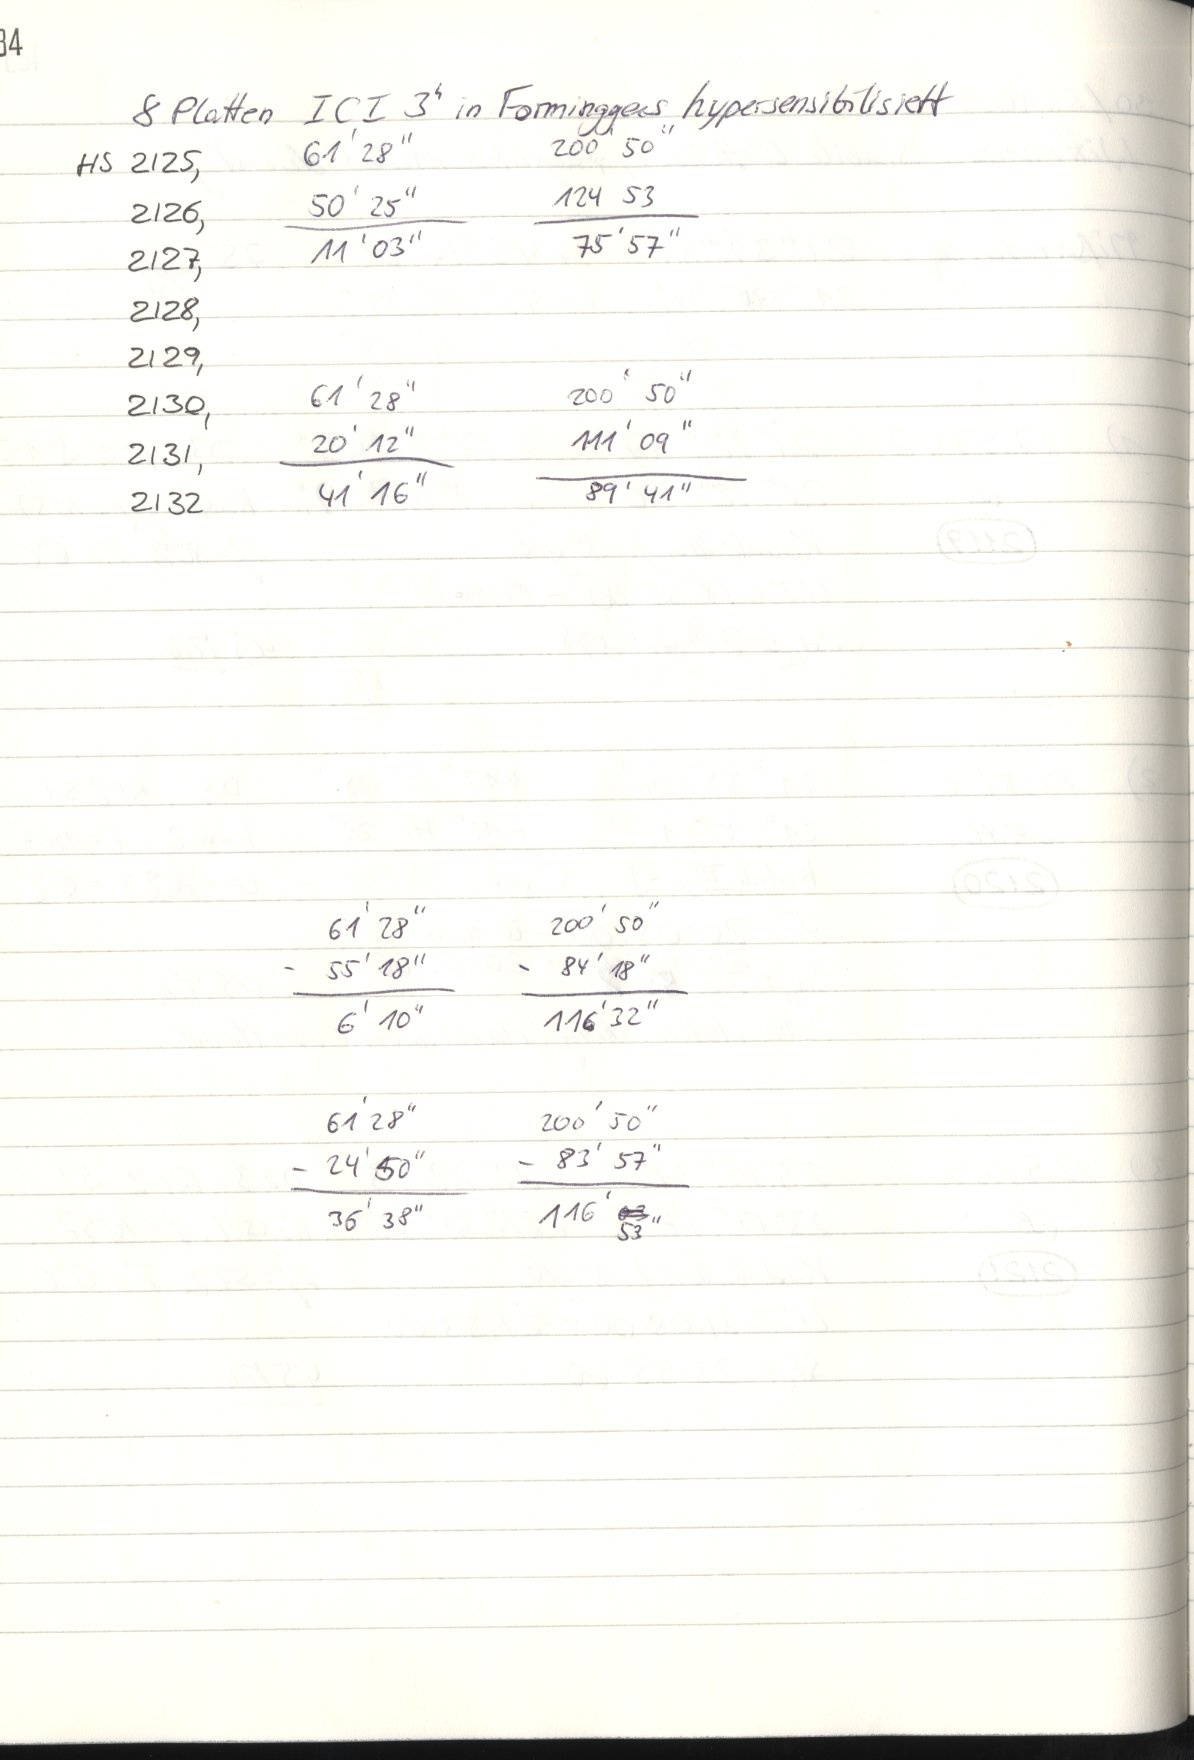 34
8 Platten ICI 3ʰ in Forminggas hypersensibilisiert
HS 2125, 61' 28" 200' 50"
2126, 50' 25" 124 53
2127, 11' 03" 75' 57"
2128,
2129,
2130, 61' 28" 200' 50"
2131, 20' 12" 111' 09"
2132 41' 16" 89' 41"
61' 28" 200' 50"
- 55' 18" - 84' 18"
6' 10" 116' 32"
61' 28" 200' 50"
- 24' 50" - 83' 57"
36' 38" 116' 53"